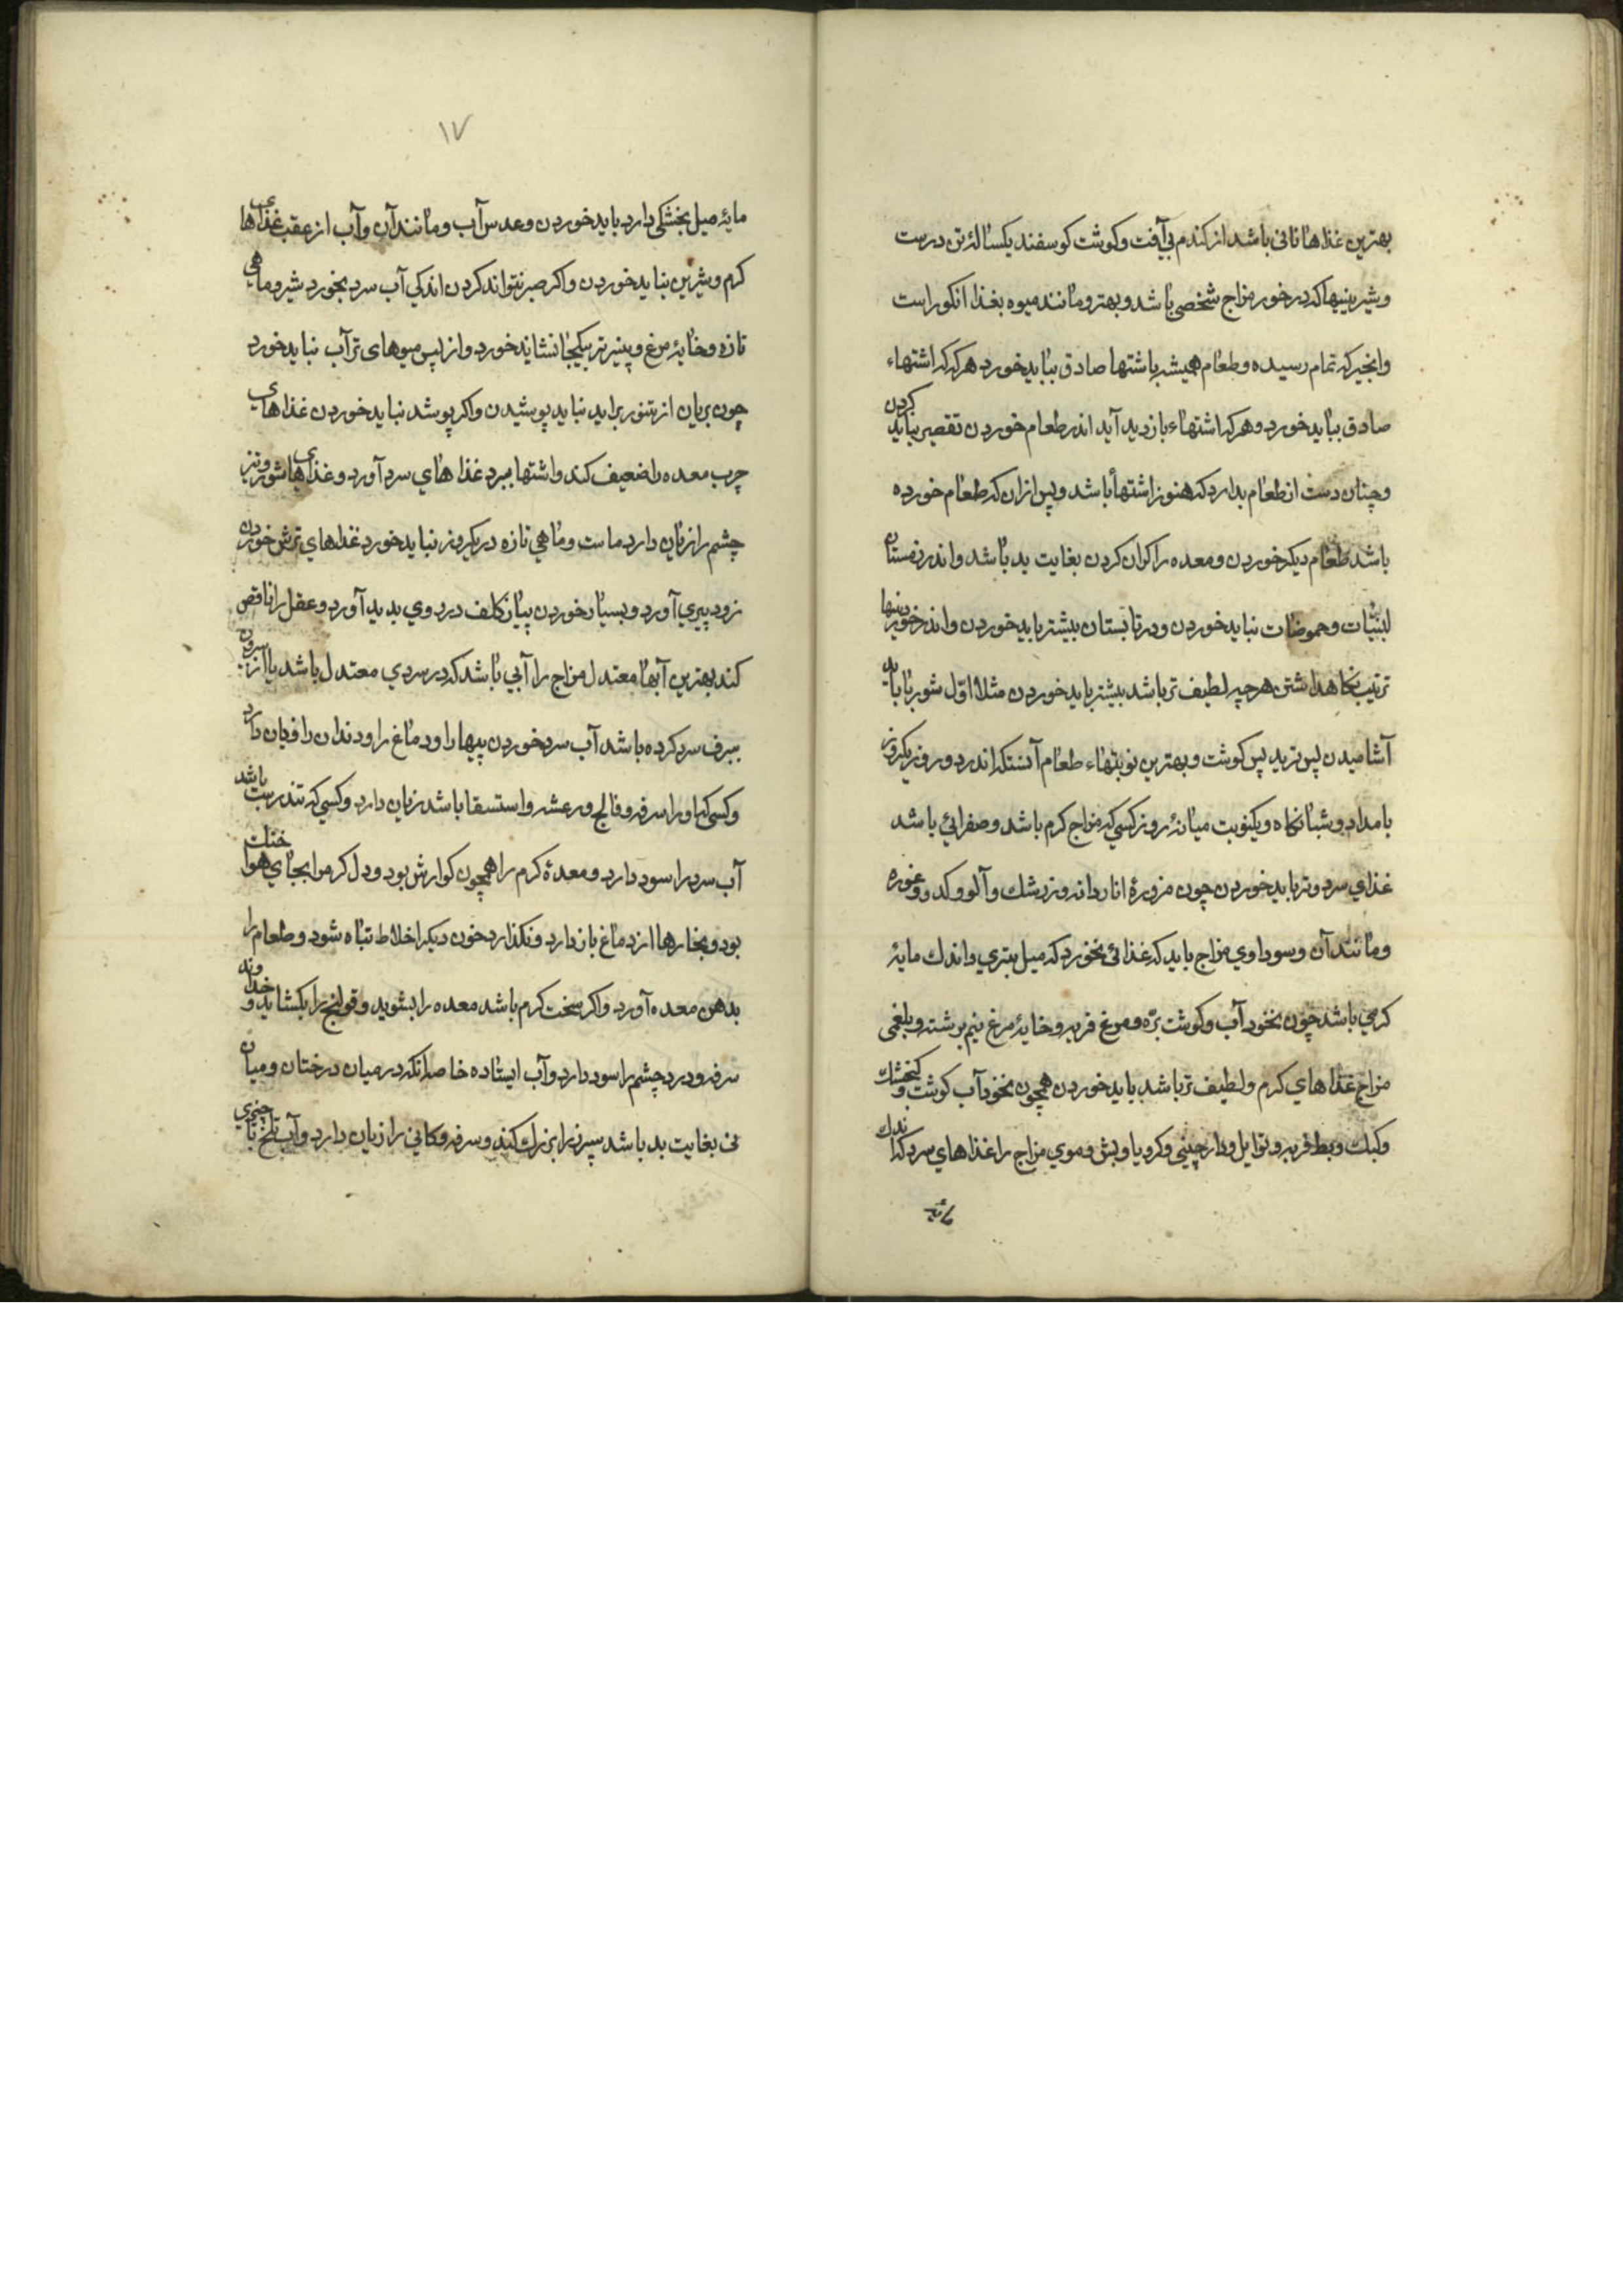 بهترین غذاها نانی باشد از کندم بی‌آفت و کوشت کوسفند یکساله تن درست
و شیرینیها که در خور مزاج شخصی باشد و بهتر و مانند میوه بغذا انکور است
و انجیر که تمام رسیده و طعام همیشه باشتها صادق بباید خورد هر که که اشتهاء
صادق بباید خورد و هر که اشتهاء باز دید آید اندر طعام خوردن تقصیر نباید کردن
و چنان دست از طعام بدارد که هنوز اشتها باشد و پس ازان که طعام خورده
باشد طعام دیکر خوردن و معده را کران کردن بغایت بد باشد و اندر زمستان
لبنیات و حموضات نباید خوردن و در تابستان بیشتر باید خوردن و اندر خوردنیها
ترتیب نکاه داشتن هر چه لطیف تر باشد بیشتر باید خوردن مثلا اول شوربا باید
آشامیدن پس ترید پس کوشت و بهترین نوبتهاء طعام آنستکه اندر دو روز یکروز
بامداد و شبانکاه و یکنوبت میانۀ روز کسی که مزاج کرم باشد و صفرائی باشد
غذای سرد و تر باید خوردن چون مزورۀ اناردانه و زرشك و آلو و کدو و غوره
و مانند آن و سوداوی مزاج باید که غذائی بخورد که میل بتری و اندك مایۀ
کرمی باشد چون نخود آب و کوشت بره و مرغ فربه و خایۀ مرغ نیم برشته و بلغمی
مزاج غذاهای کرم و لطیف تر باشد باید خوردن همچون نخود آب کوشت و کنجشك
و کبك و بط فربه و توابل و دارچینی و کرویا و بش و موی مزاج را غذاهای سرد که اندك
مایۀ
۱۷
مایۀ میل بخشکی دارد باید خوردن و عدس آب و مانند آن و آب از عقب غذای ها
کرم و شیرین نباید خوردن و اکر صبر نتواند کردن اندکی آب سرد بخورد شیر و ماهی
تازه و خایۀ مرغ و پنیر تر بیکجا نشاید خورد و از پس میوهای تر آب نباید خورد
چون بریان از تنور براید نباید پوشیدن و اکر پوشد نباید خوردن غذاهای
چرب معده را ضعیف کند و اشتها ببرد غذا های سرد آورد و غذای ها شور و تیز
چشم را زیان دارد ماست و ماهی تازه در یکروز نباید خورد غذاهای ترش خوردن
زود پیری آورد و بسیار خوردن پیاز کلف در روی بدید آورد و عقل را ناقص
کند بهترین آبها معتدل مزاج را آبی باشد که در سردی معتدل باشد یا از بیرون
ببرف سرد کرده باشد آب سرد خوردن پیها را و دماغ را و دندان را زیان دارد
و کسی که او را سرفه و فالج و رعشه و استسقا باشد زیان دارد و کسی که تندرست باشد
آب سرد را سود دارد و معدۀ کرم را همچون کوارش بود و دل کرم را بجای هوا خنك
بود و بخارها از دماغ باز دارد و نکذارد خون دیکر اخلاط تباه شود و طعام را
بدهن معده آورد و اکر سخت کرم باشد معده را بشوید و قولنج را بکشاید و خداوند
سرفه و درد چشم را سود دارد و آب ایستاده خاصه انکه در میان درختان و میان
نی بغایت بد باشد سپرز را بزرك کند و سرفه و کانی را زیان دارد و آب تلخ با چیزی